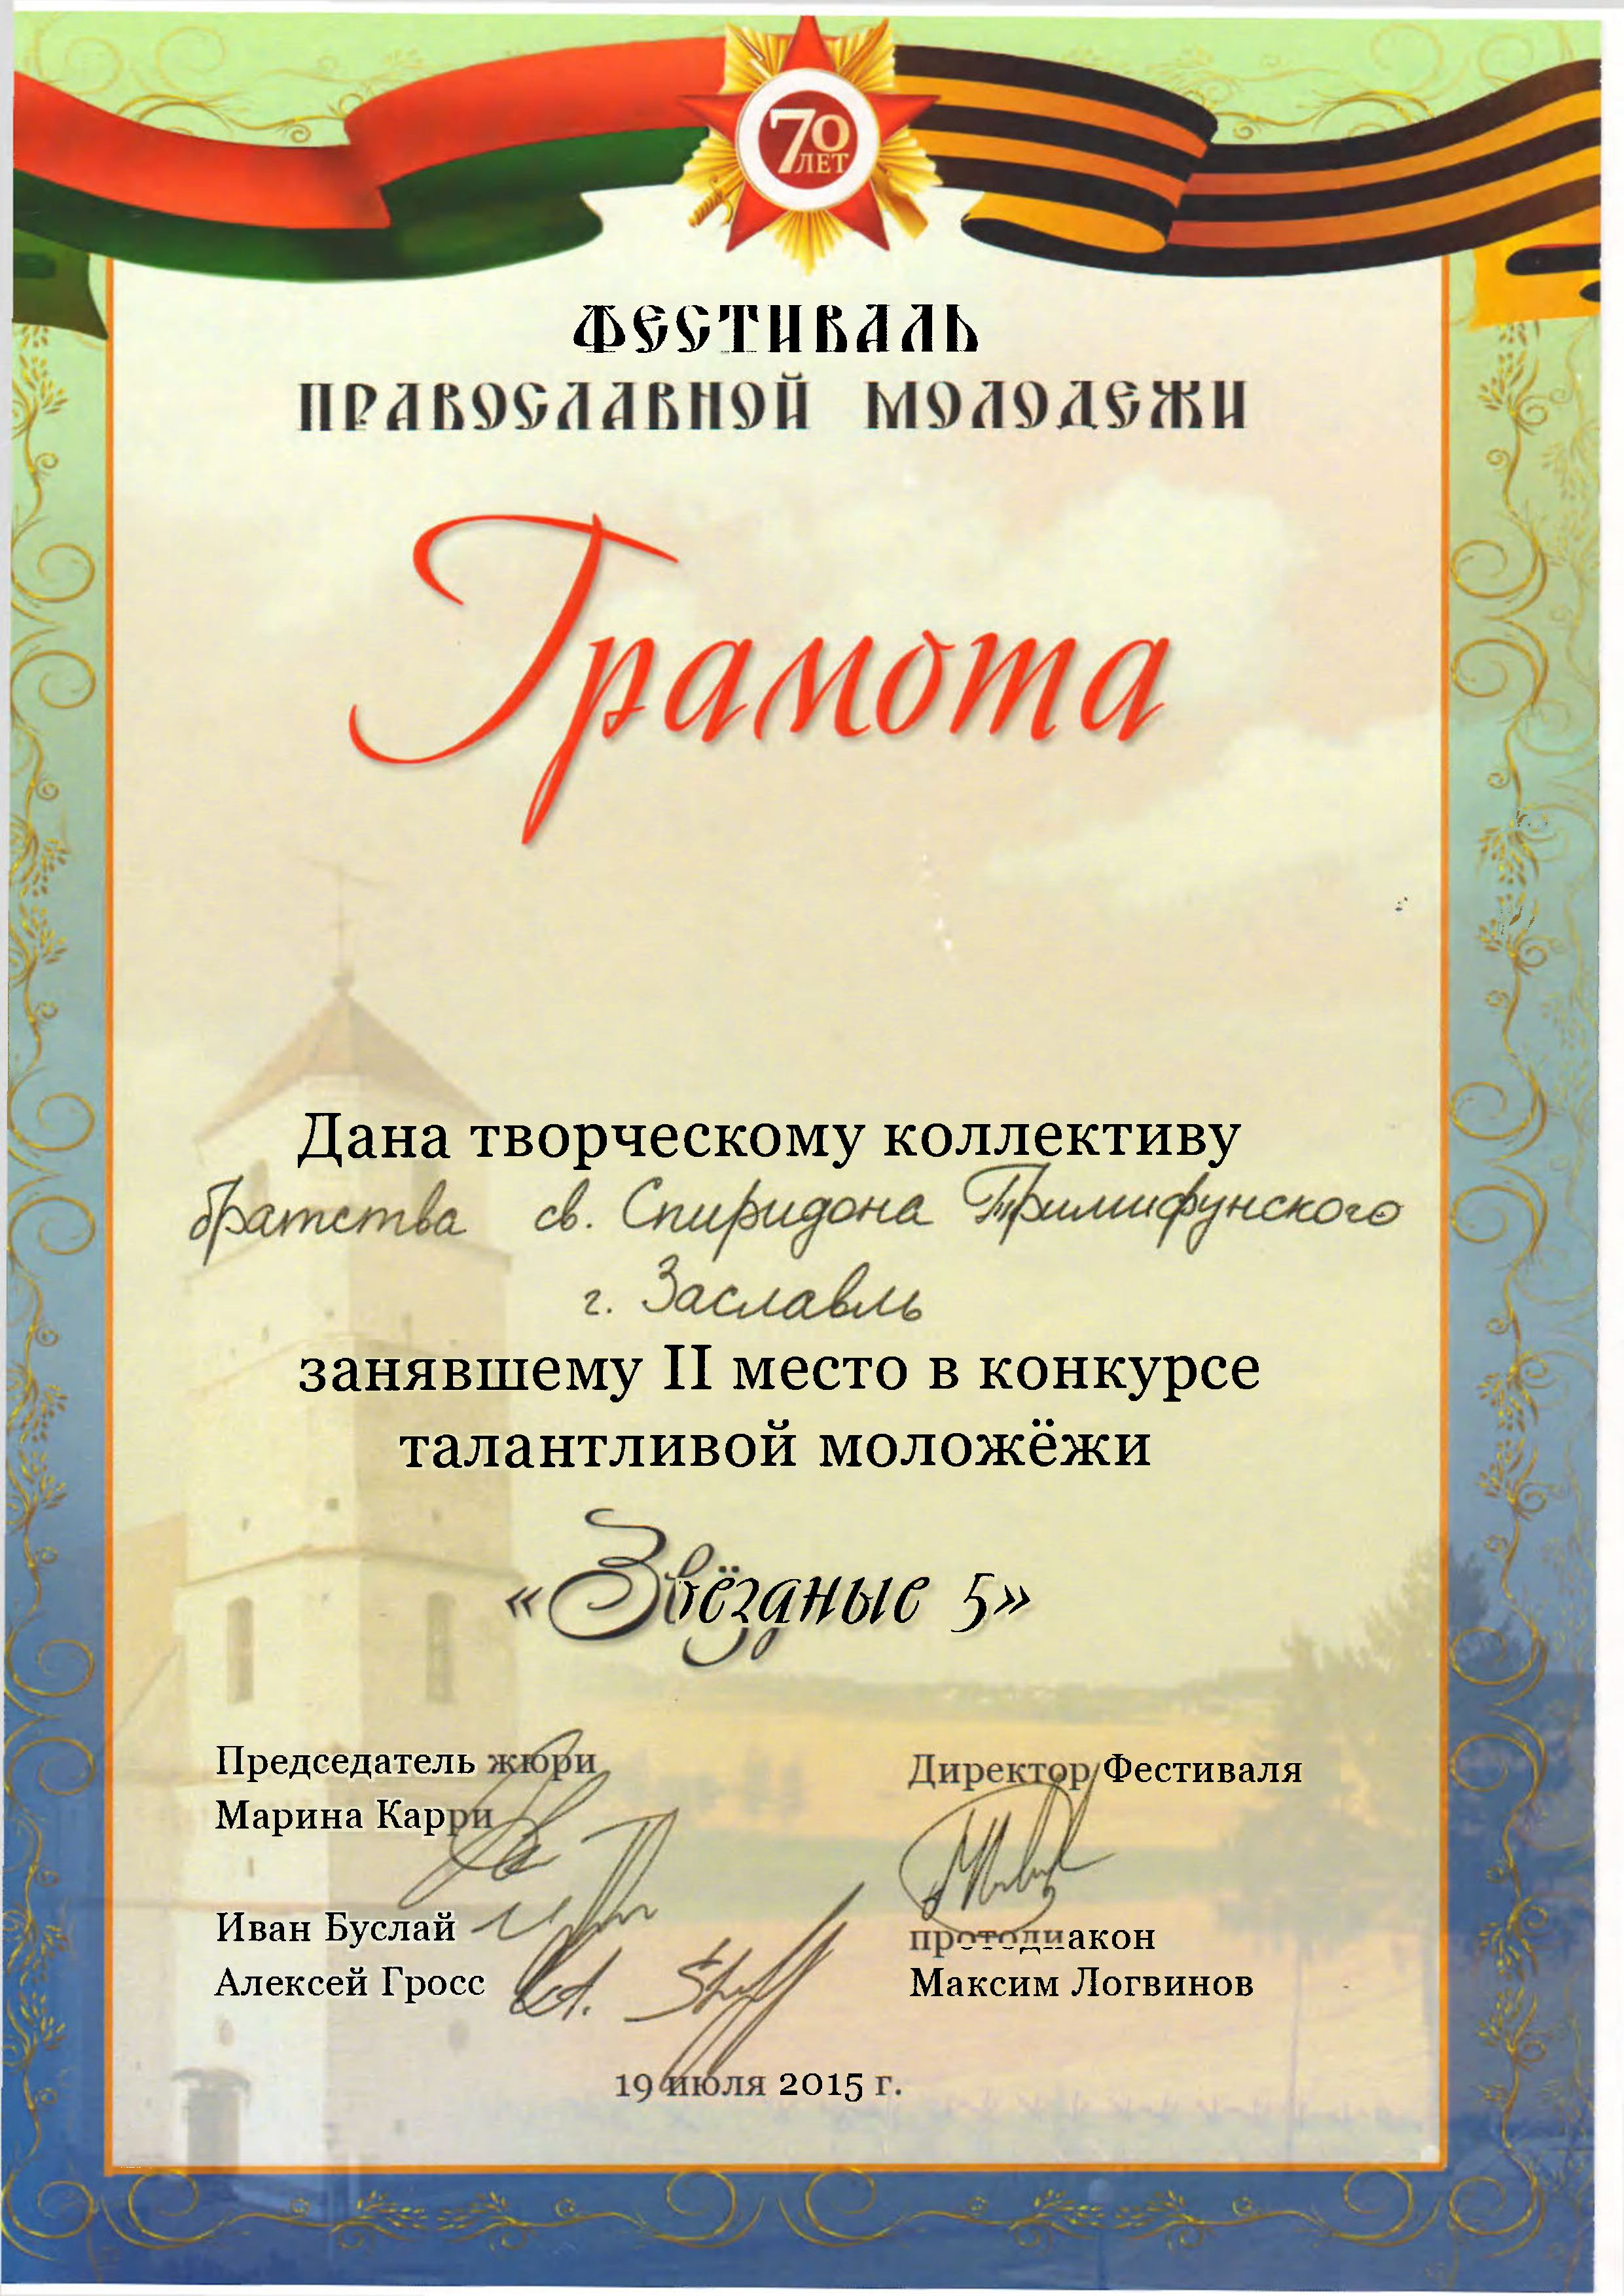 70
ЛЕТ
ФЕСТИВАЛЬ
ПРАВОСЛАВНОЙ МОЛОДЕЖИ
Грамота
Дана творческому коллективу
братства св. Спиридона Тримифунского
г. Заславль
занявшему II место в конкурсе
талантливой моложёжи
«Звёздные 5»
Председатель жюри
Марина Карри
Иван Буслай
Алексей Гросс
Директор Фестиваля
протодиакон
Максим Логвинов
19 июля 2015 г.